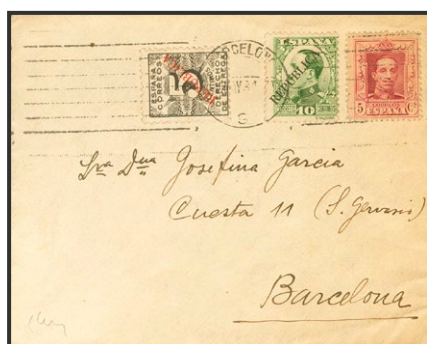 ESPAÑA
CORREOS
DERECHO
DE ENTREGA
REPUBLICA
ESPAÑA
10
ESPAÑA
5 C
Sra Dna Josefina Garcia
Cuesta 11 (S. Gervasio)
Barcelona